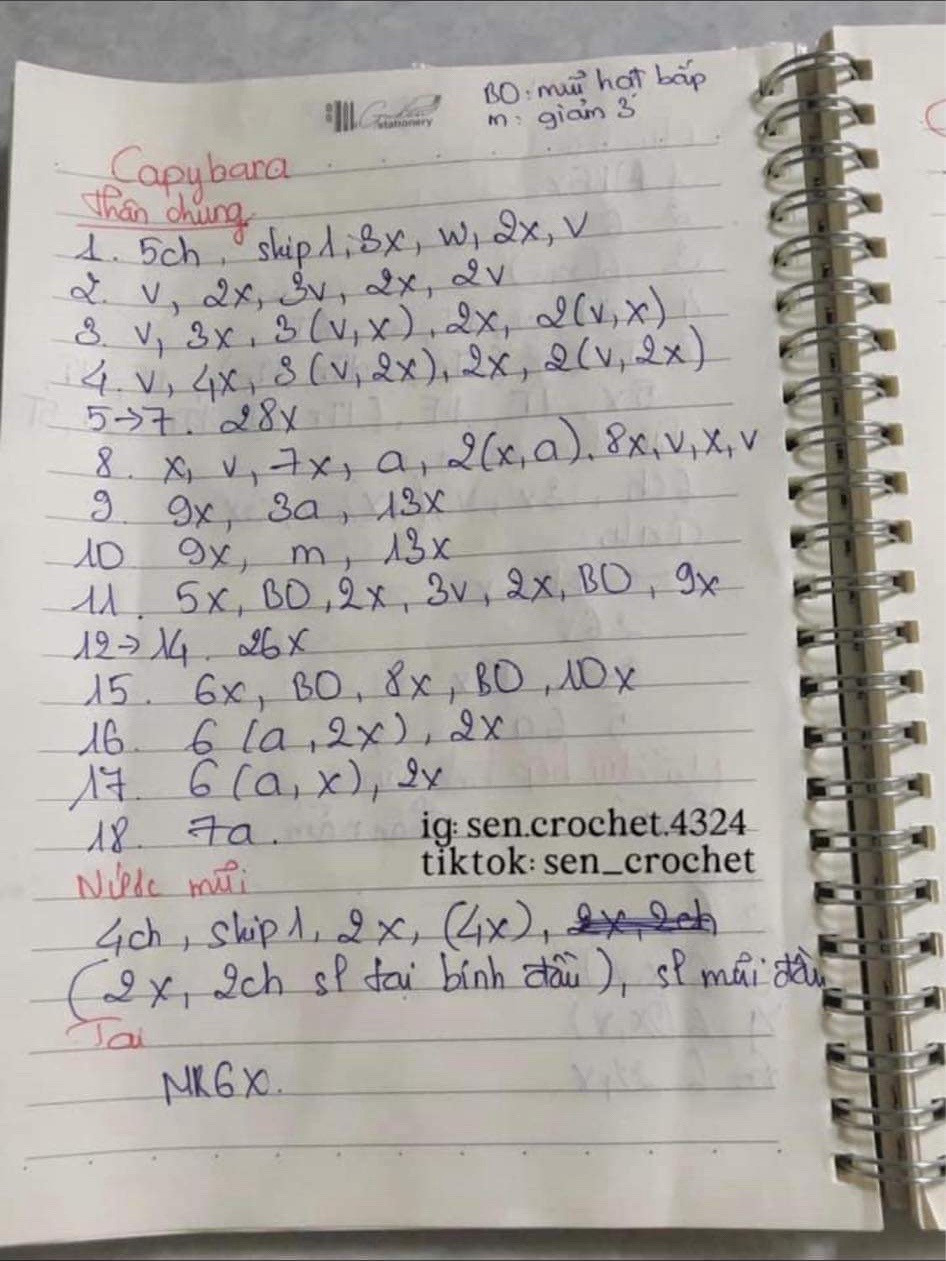 BO: mũi hạt bắp
stationery
m: giảm 3
Capybara
Thân chung
1. 5ch, skip 1, 3x, w, 2x, v
2. v, 2x, 3v, 2x, 2v
3. v, 3x, 3(v,x), 2x, 2(v,x)
4. v, 4x, 3(v,2x), 2x, 2(v,2x)
5→7. 28x
8. x, v, 7x, a, 2(x,a), 8x, v, x, v
9. 9x, 3a, 13x
10 9x, m, 13x
11. 5x, BO, 2x, 3v, 2x, BO, 9x
12→14. 26x
15. 6x, BO, 8x, BO, 10x
16. 6(a, 2x), 2x
17. 6(a, x), 2x
18. 7a.
ig: sen.crochet.4324
tiktok: sen_crochet
mũi
4ch, skip 1, 2x, (4x), 2x, 2ch
(2x, 2ch sl tại bính đầu), sl mũi đầu
Tai
MR6x.